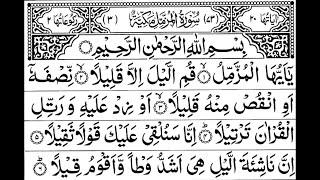 اٰيَاتُهَا ٢٠ (٧٣) سُوْرَةُ الْمُزَّمِّلِ مَكِّيَّةٌ (٣) رُكُوْعَاتُهَا ٢
بِسْمِ اللّٰهِ الرَّحْمٰنِ الرَّحِيْمِ
يٰۤاَيُّهَا الْمُزَّمِّلُ ۙ﴿١﴾ قُمِ الَّيْلَ اِلَّا قَلِيْلًا ۙ﴿٢﴾ نِّصْفَهٗۤ
اَوِ انْقُصْ مِنْهُ قَلِيْلًا ۙ﴿٣﴾ اَوْ زِدْ عَلَيْهِ وَ رَتِّلِ
الْقُرْاٰنَ تَرْتِيْلًا ؕ﴿٤﴾ اِنَّا سَنُلْقِيْ عَلَيْكَ قَوْلًا ثَقِيْلًا ﴿٥﴾
اِنَّ نَاشِئَةَ الَّيْلِ هِيَ اَشَدُّ وَطْاً وَّ اَقْوَمُ قِيْلًا ؕ﴿٦﴾